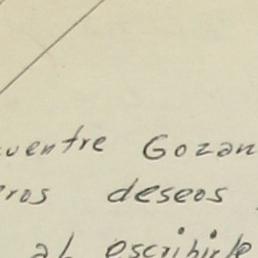 uentre Gozan
eros deseos
al escribirle